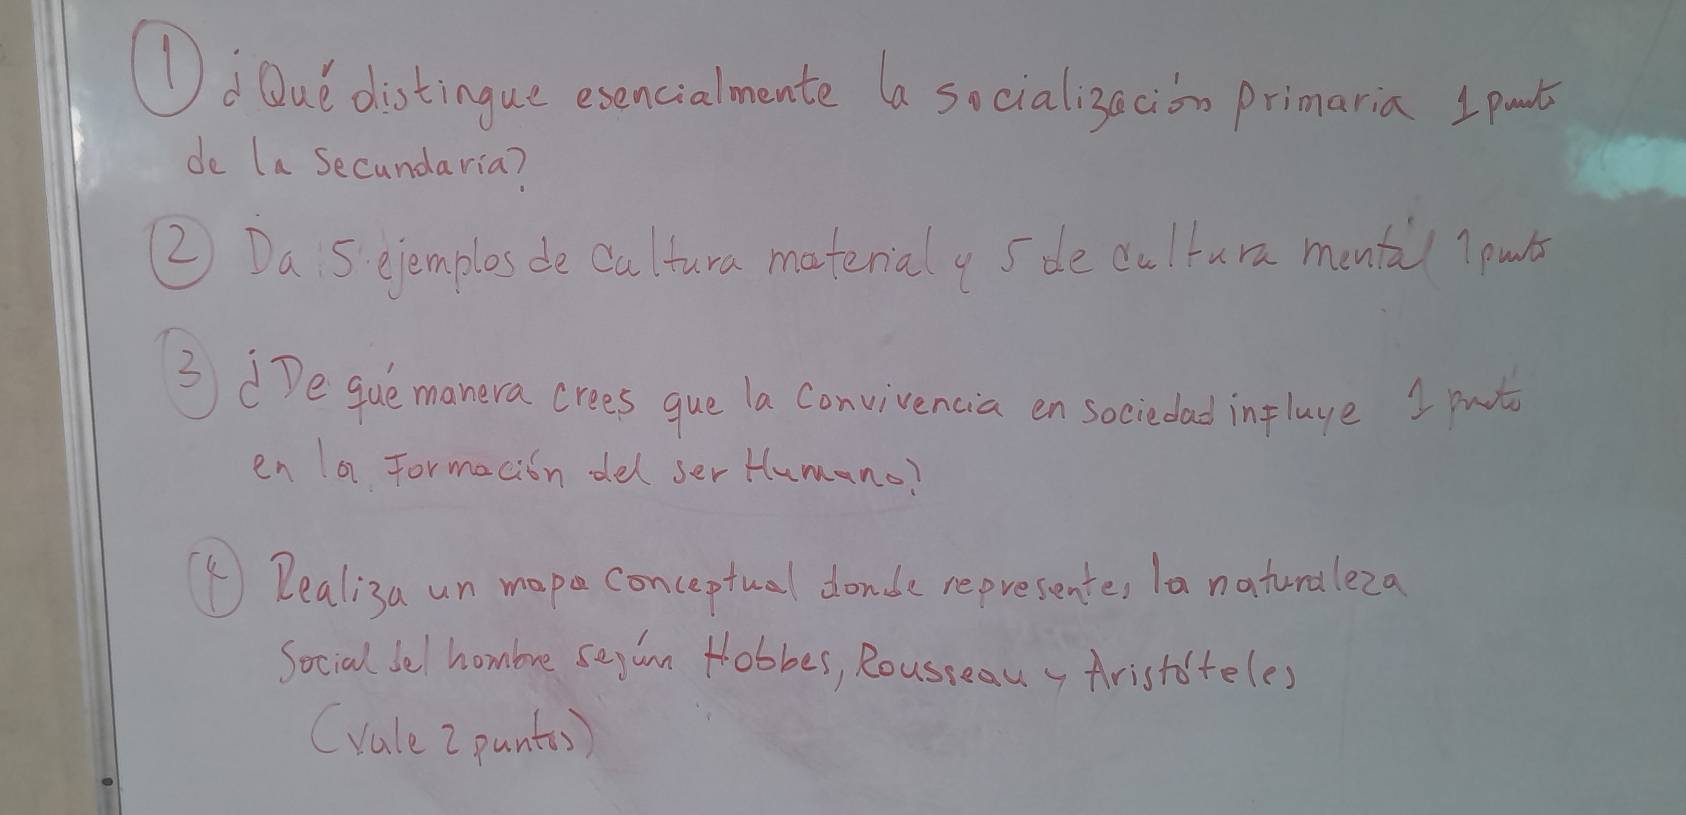 ① ¿Qué distingue esencialmente la socialización primaria 1 punto
de la secundaria?
② Da 5 ejemplos de cultura material y 5 de cultura mental 1 punto
③ ¿De qué manera crees que la convivencia en sociedad influye 1 punto
en la formación del ser Humano?
④ Realiza un mapa conceptual donde representes la naturaleza
Social del hombre según Hobbes, Rousseau y Aristóteles
(Vale 2 puntos)